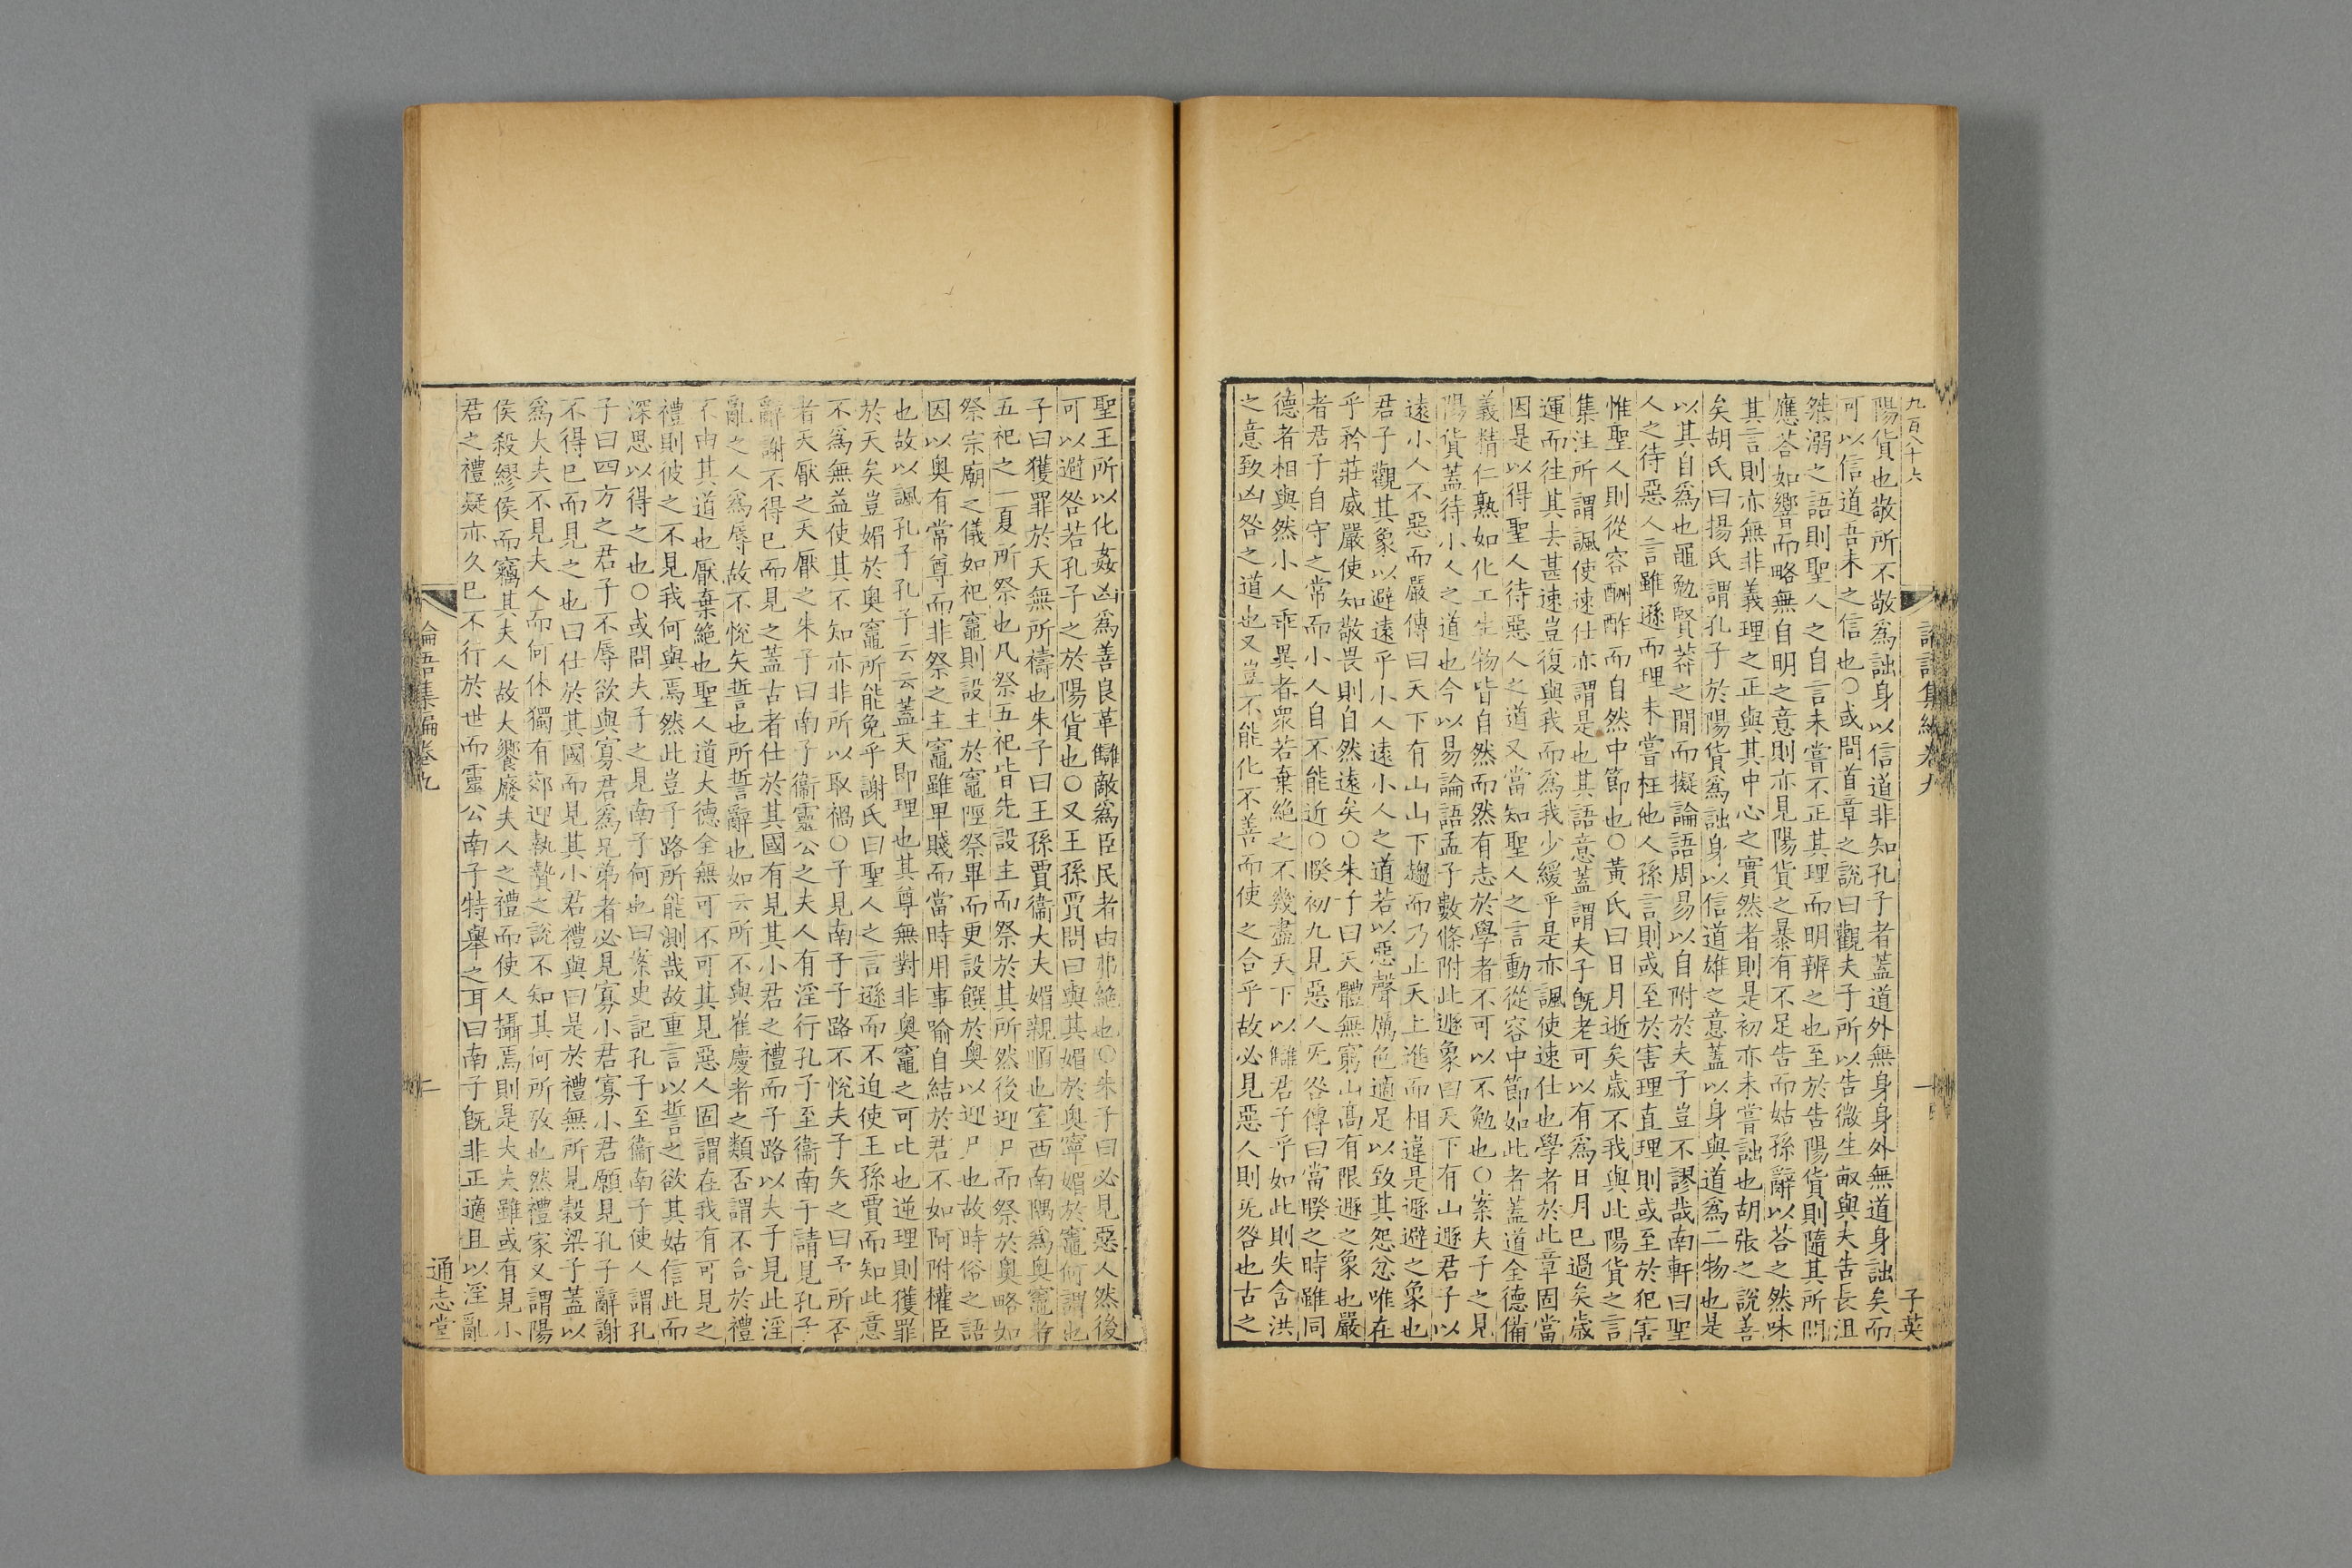 九百八十六
子英
陽貨也敬所不敬爲詘身以信道非知孔子者蓋道外無身身外無道身詘矣而
可以信道吾未之信也○或問首章之說曰觀夫子所以告微生畝與夫告長沮
桀溺之語則聖人之自言未嘗不正其理而明辨之也至於告陽貨則隨其所問
應荅如響而略無自明之意則亦見陽貨之暴有不足告而姑孫辭以荅之然味
其言則亦無非義理之正與其中心之實然者則是初亦未嘗詘也胡張之說善
矣胡氏曰揚氏謂孔子於陽貨爲詘身以信道雄之意蓋以身與道爲二物也是
以其自爲也黽勉賢莽之閒而擬論語周易以自附於夫子豈不謬哉南軒曰聖
人之待惡人言雖遜而理未嘗枉他人孫言則或至於害理直理則或至於犯害
惟聖人則從容酬酢而自然中節也○黃氏曰日月逝矣歲不我與此陽貨之言
集注所謂諷使速仕亦謂是也其語意蓋謂夫子旣老可以有爲日月巳過矣歲
運而往其去甚速豈復與我而爲我少緩乎是亦諷使速仕也學者於此章固當
因是以得聖人待惡人之道又當知聖人之言動從容中節如此者蓋道全德備
義精仁熟如化工生物皆自然而然有志於學者不可以不勉也○案夫子之見
陽貨蓋待小人之道也今以易論語孟子數條附此遯象曰天下有山遯君子以
遠小人不惡而嚴傳曰天下有山山下趨而乃止天上進而相違是遯避之象也
君子觀其象以避遠乎小人遠小人之道若以惡聲厲色適足以致其怨忿唯在
乎矜莊威嚴使知敬畏則自然遠矣○朱子曰天體無窮山高有限遯之象也嚴
者君子自守之常而小人自不能近○暌初九見惡人旡咎傳曰當暌之時雖同
德者相與然小人乖異者衆若棄絶之不幾盡天下以讎君子乎如此則失含洪
之意致凶咎之道也又豈不能化不善而使之合乎故必見惡人則旡咎也古之
聖王所以化姦凶爲善良革讎敵爲臣民者由弗絶也○朱子曰必見惡人然後
可以避咎若孔子之於陽貨也○又王孫賈問曰與其媚於奥寧媚於竈何謂也
子曰獲罪於天無所禱也朱子曰王孫賈衞大夫媚親順也室西南隅爲奥竈者
五祀之一夏所祭也凡祭五祀皆先設主而祭於其所然後迎尸而祭於奥略如
祭宗廟之儀如祀竈則設主於竈陘祭畢而更設饌於奥以迎尸也故時俗之語
因以奥有常尊而非祭之主竈雖卑賤而當時用事喻自結於君不如阿附權臣
也故以諷孔子孔子云云蓋天即理也其尊無對非奥竈之可比也逆理則獲罪
於天矣豈媚於奥竈所能免乎謝氏曰聖人之言遜而不迫使王孫賈而知此意
不爲無益使其不知亦非所以取禍○子見南子子路不悅夫子矢之曰予所否
者天厭之天厭之朱子曰南子衞靈公之夫人有淫行孔子至衞南子請見孔子
辭謝不得巳而見之蓋古者仕於其國有見其小君之禮而子路以夫子見此淫
亂之人爲辱故不悅矢誓也所誓辭也如云所不與崔慶者之類否謂不合於禮
不由其道也厭棄絶也聖人道大德全無可不可其見惡人固謂在我有可見之
禮則彼之不見我何與焉然此豈子路所能測哉故重言以誓之欲其姑信此而
深思以得之也○或問夫子之見南子何也曰案史記孔子至衞南子使人謂孔
子曰四方之君子不辱欲與寡君爲兄弟者必見寡小君寡小君願見孔子辭謝
不得巳而見之也曰仕於其國而見其小君禮與曰是於禮無所見穀梁子蓋以
爲大夫不見夫人而何休獨有郊迎執贄之說不知其何所攷也然禮家又謂陽
侯殺繆侯而竊其夫人故大饗廢夫人之禮而使人攝焉則是大夫雖或有見小
君之禮疑亦久巳不行於世而靈公南子特舉之耳曰南子旣非正適且以淫亂
論語集編卷九
二
通志堂